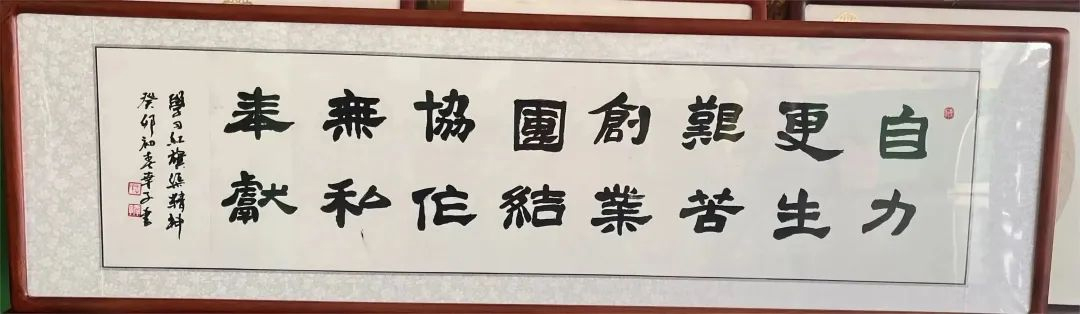 自力
更生
艱苦
創業
團結
協作
無私
奉獻
學習紅旗渠精神
癸卯初春幸子書